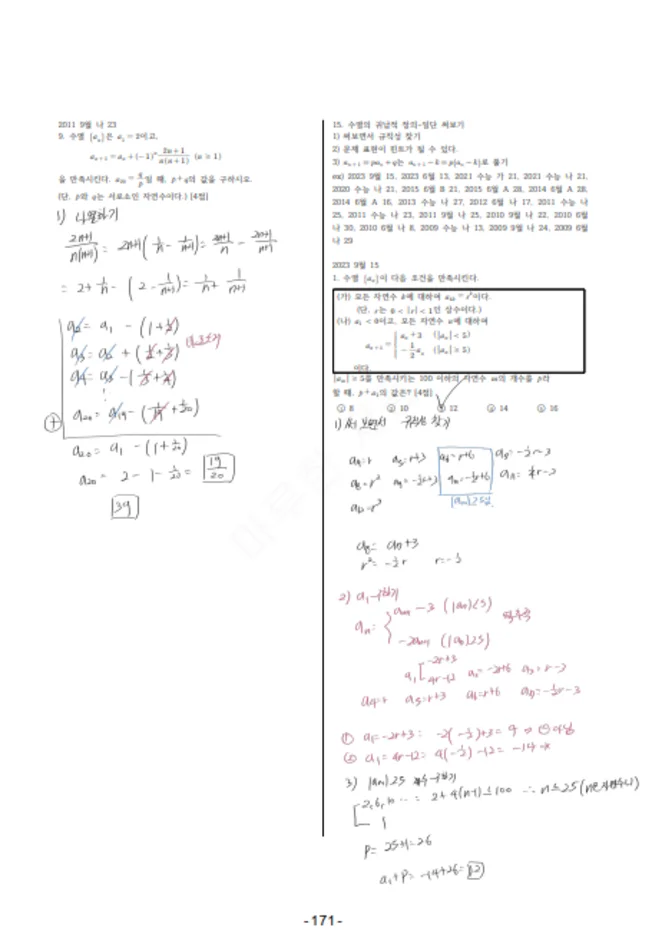 2011 9월 나 23
9. 수열 {aₙ}은 a₁ = 2이고,
aₙ₊₁ = aₙ + (-1)ⁿ (2n+1)/(n(n+1)) (n ≥ 1)
을 만족시킨다. a₂₀ = q/p일 때, p+q의 값을 구하시오.
(단, p와 q는 서로소인 자연수이다.) [4점]
1) 나열하기
(2n+1)/(n(n+1)) = 2n+1(1/n - 1/(n+1)) = (2n+1)/n - (2n+1)/(n+1)
= 2+1/n - (2 - 1/(n+1)) = 1/n + 1/(n+1)
a₂ = a₁ - (1+1/2)
a₃ = a₂ + (1/2+1/3)
a₄ = a₃ - (1/3+1/4)
a₂₀ = a₁₉ - (1/19+1/20)
a₂₀ = a₁ - (1+1/20)
a₂₀ = 2 - 1 - 1/20 = 19/20
39
15. 수열의 귀납적 정의-일단 써보기
1) 써보면서 규칙성 찾기
2) 문제 표현이 힌트가 될 수 있다.
3) aₙ₊₁ = paₙ + q는 aₙ₊₁ - k = p(aₙ - k)로 풀기
ex) 2023 9월 15, 2023 6월 13, 2021 수능 가 21, 2021 수능 나 21,
2020 수능 나 21, 2015 6월 B 21, 2015 6월 A 28, 2014 6월 A 28,
2014 6월 A 16, 2013 수능 나 27, 2012 6월 나 17, 2011 수능 나
25, 2011 수능 나 23, 2011 9월 나 25, 2010 9월 나 22, 2010 6월
나 30, 2010 6월 나 8, 2009 수능 나 13, 2009 9월 나 24, 2009 6월
나 29
2023 9월 15
1. 수열 {aₙ}이 다음 조건을 만족시킨다.
(가) 모든 자연수 k에 대하여 a₄ₖ = rᵏ이다.
(단, r는 0 < |r| < 1인 상수이다.)
(나) a₁ < 0이고, 모든 자연수 n에 대하여
aₙ₊₁ = { aₙ + 3 (|aₙ| < 5)
-1/2 aₙ (|aₙ| ≥ 5)
이다.
|aₘ| ≥ 5를 만족시키는 100 이하의 자연수 m의 개수를 p라
할 때, p + a₁의 값은? [4점]
① 8 ② 10 ③ 12 ④ 14 ⑤ 16
1) 써보면서 규칙성 찾기
a₄=r a₅=r+3 a₆=r+6 a₇=-1/2r-3
a₈=r²
a₁₂=r³
r² = -1/2r r=-1/2
2) a₁구하기
a₄=r a₅=r+3 a₆=r+6 a₇=-1/2r-3
① a₁=-2r+3: -2(-1/2)+3=4 → ⊖아님
② a₁=4r-12= 4(-1/2)-12=-14
2+4(n-1)≤100 ∴ n≤25
p= 25+1=26
a₁+p= -14+26=12
-171-